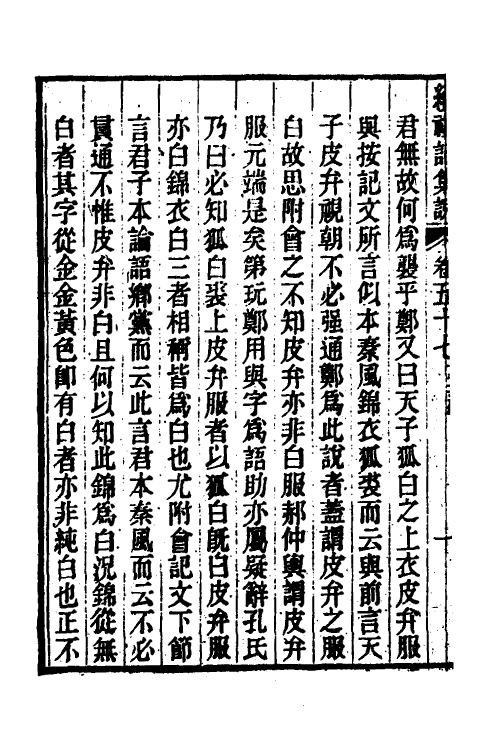 續禮記集說卷五十七
君無故何爲襲乎鄭又曰天子狐白之上衣皮弁服
與按記文所言似本秦風錦衣狐裘而云與前言天
子皮弁視朝不必强通鄭爲此說者蓋謂皮弁之服
白故思附會之不知皮弁亦非白服郝仲輿謂皮弁
服元端是矣第玩鄭用與字爲語助亦屬疑辭孔氏
乃曰必知狐白裘上皮弁服者以狐白旣白皮弁服
亦白錦衣白三者相稱皆爲白也尤附會記文下節
言君子本論語鄉黨而云此言君本秦風而云不必
貫通不惟皮弁非白且何以知此錦爲白況錦從無
白者其字從金金黃色卽有白者亦非純白也正不